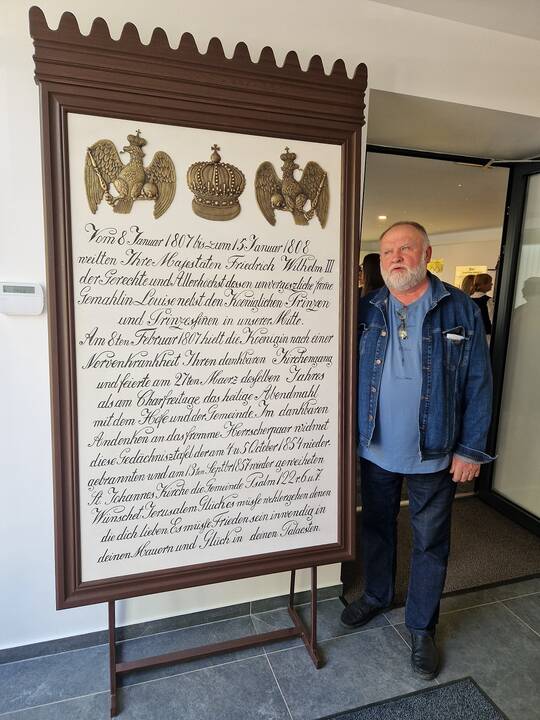 Vom 8. Januar 1807 bis zum 15 Januar 1808
weilten Ihre Majestäten Friedrich Wilhelm III
der Gerechte und Allerhöchst dessen unvergeszliche fromme
Gemahlin Louise nebst den Koeniglichen Prinzen
und Prinzessinen in unserer Mitte.
Am 8ten Februar 1807 hielt die Koenigin nach einer
Nervenkrankheit Ihren dankbaren Kirchengang
und feierte am 27ten Maerz desselben Jahres
als am Charfreitage das heilige Abendmahl
mit dem Hofe und der Gemeinde. Im dankbaren
Andenken an das fromme Herrscherpaar widmet
diese Gedächnistafel der am 4 u 5 October 1854 nieder-
gebrannten und am 13ten Septbr 1857 wieder geweiheten
St. Johannes Kirche die Gemeinde Psalm 122 v 6 u. 7.
Wünschet Jerusalem Glück es müsse wohlergehen denen
die dich lieben. Es müsse Frieden sein inwendig in
deinen Mauern und Glück in deinen Palaesten.